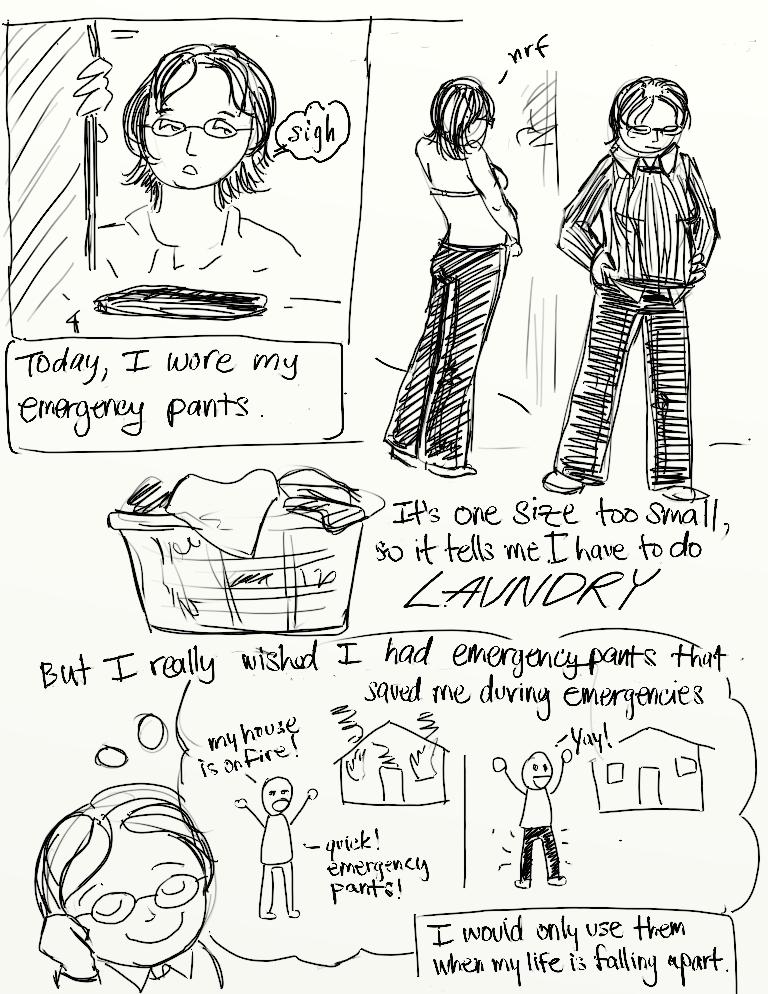 sigh
nrf
Today, I wore my
emergency pants.
It's one size too small,
so it tells me I have to do
LAUNDRY
But I really wished I had emergency pants that
saved me during emergencies
my house
is on fire!
quick!
emergency
pants!
Yay!
I would only use them
when my life is falling apart.